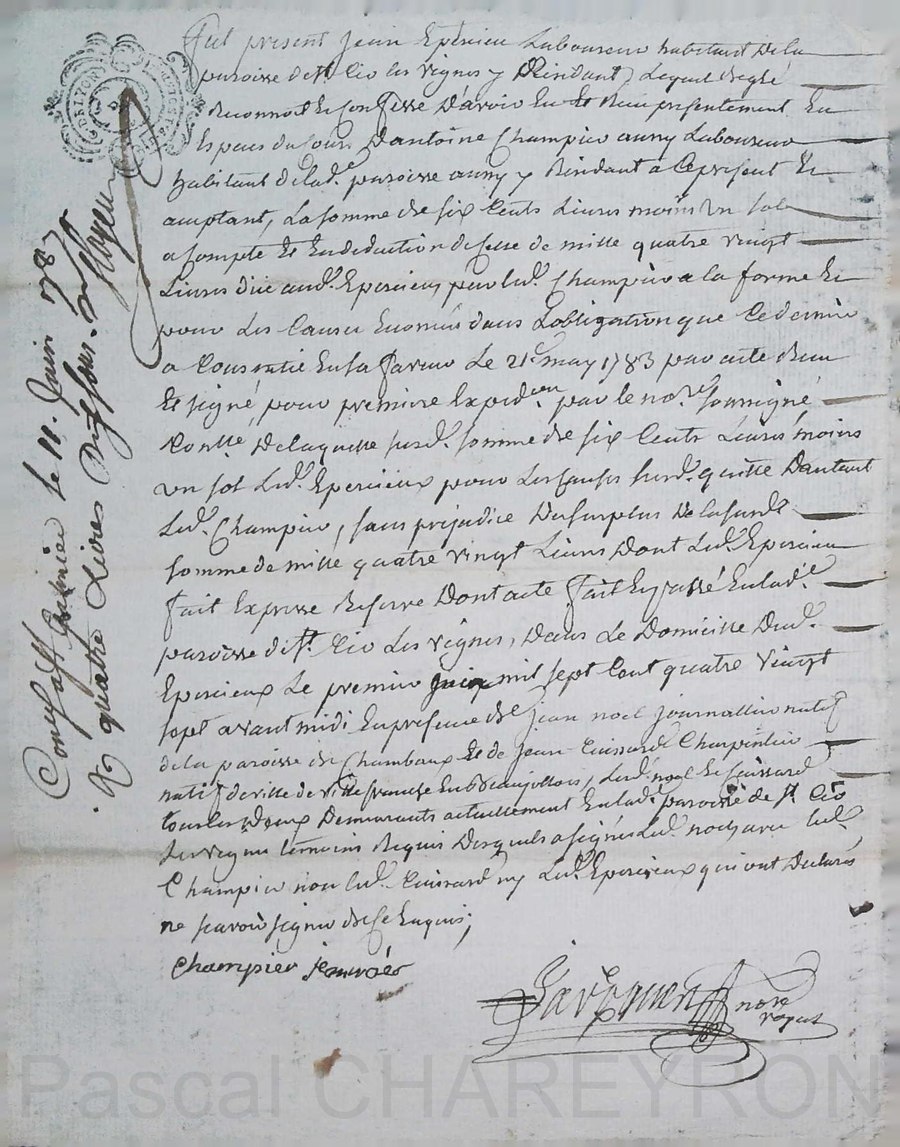 Fut present Jean Eperçieu Laboureur habitant de la
paroisse de St Cio les vignes y Résidant, Lequel de gré
Reconnoit Et Confesse D'avoir Eu Et Reçu présentement En
Espèces du cours D'antoine Champier aussy Laboureur
habitant de lad.e paroisse aussy y Résidant a Ce présent Et
acceptant, La somme de six Cents Livres moins un sol
a compte Et En deduction de Celle de mille quatre vingt
Livres düe aud. Epercieux par led. Champier a la forme Et
pour Les Causes Enoncées dans L'obligation que Ce dernier
a Consentie En sa faveur Le 21e may 1783 par acte Reçu
Et signé, pour première Expéd.on par le no.re soussigné
De laquelle susd. somme de six Cents Livres moins
un sol Led. Epercieux pour Les Causes susd. quitte D'autant
Led. Champier, sans préjudice Du surplus De la susd.
somme de mille quatre vingt Livres Dont Led. Epercieu
fait Expresse Reserve Dont acte fait Et passé En lad.e
paroisse de St. Cio Les vignes, Dans Le Domicille Dud.
Epercieux Le premier juin mil sept Cent quatre vingt
sept avant midi En présence de Jean noel journallier natif
de la paroisse de Chambaux Et de Jean Cuissard Charpentier
natif de ville de villefranche En Beaujollois, Lesd. noel Et Cuissard
tous Les Deux Demeurants actuellement En lad.e paroisse de St. Cio
Les vignes témoins Requis Desquels a signé Led. noel avec led.
Champier non led. Cuissard ny Led. Epercieux qui ont Déclaré
ne savoir signer de Ce Enquis;
Champier Jean noël
nore
royal
Con.le à St Galmier le 11. Juin 1787
R quatre Livres dix sous.
DE LYON
Pascal CHAREYRON